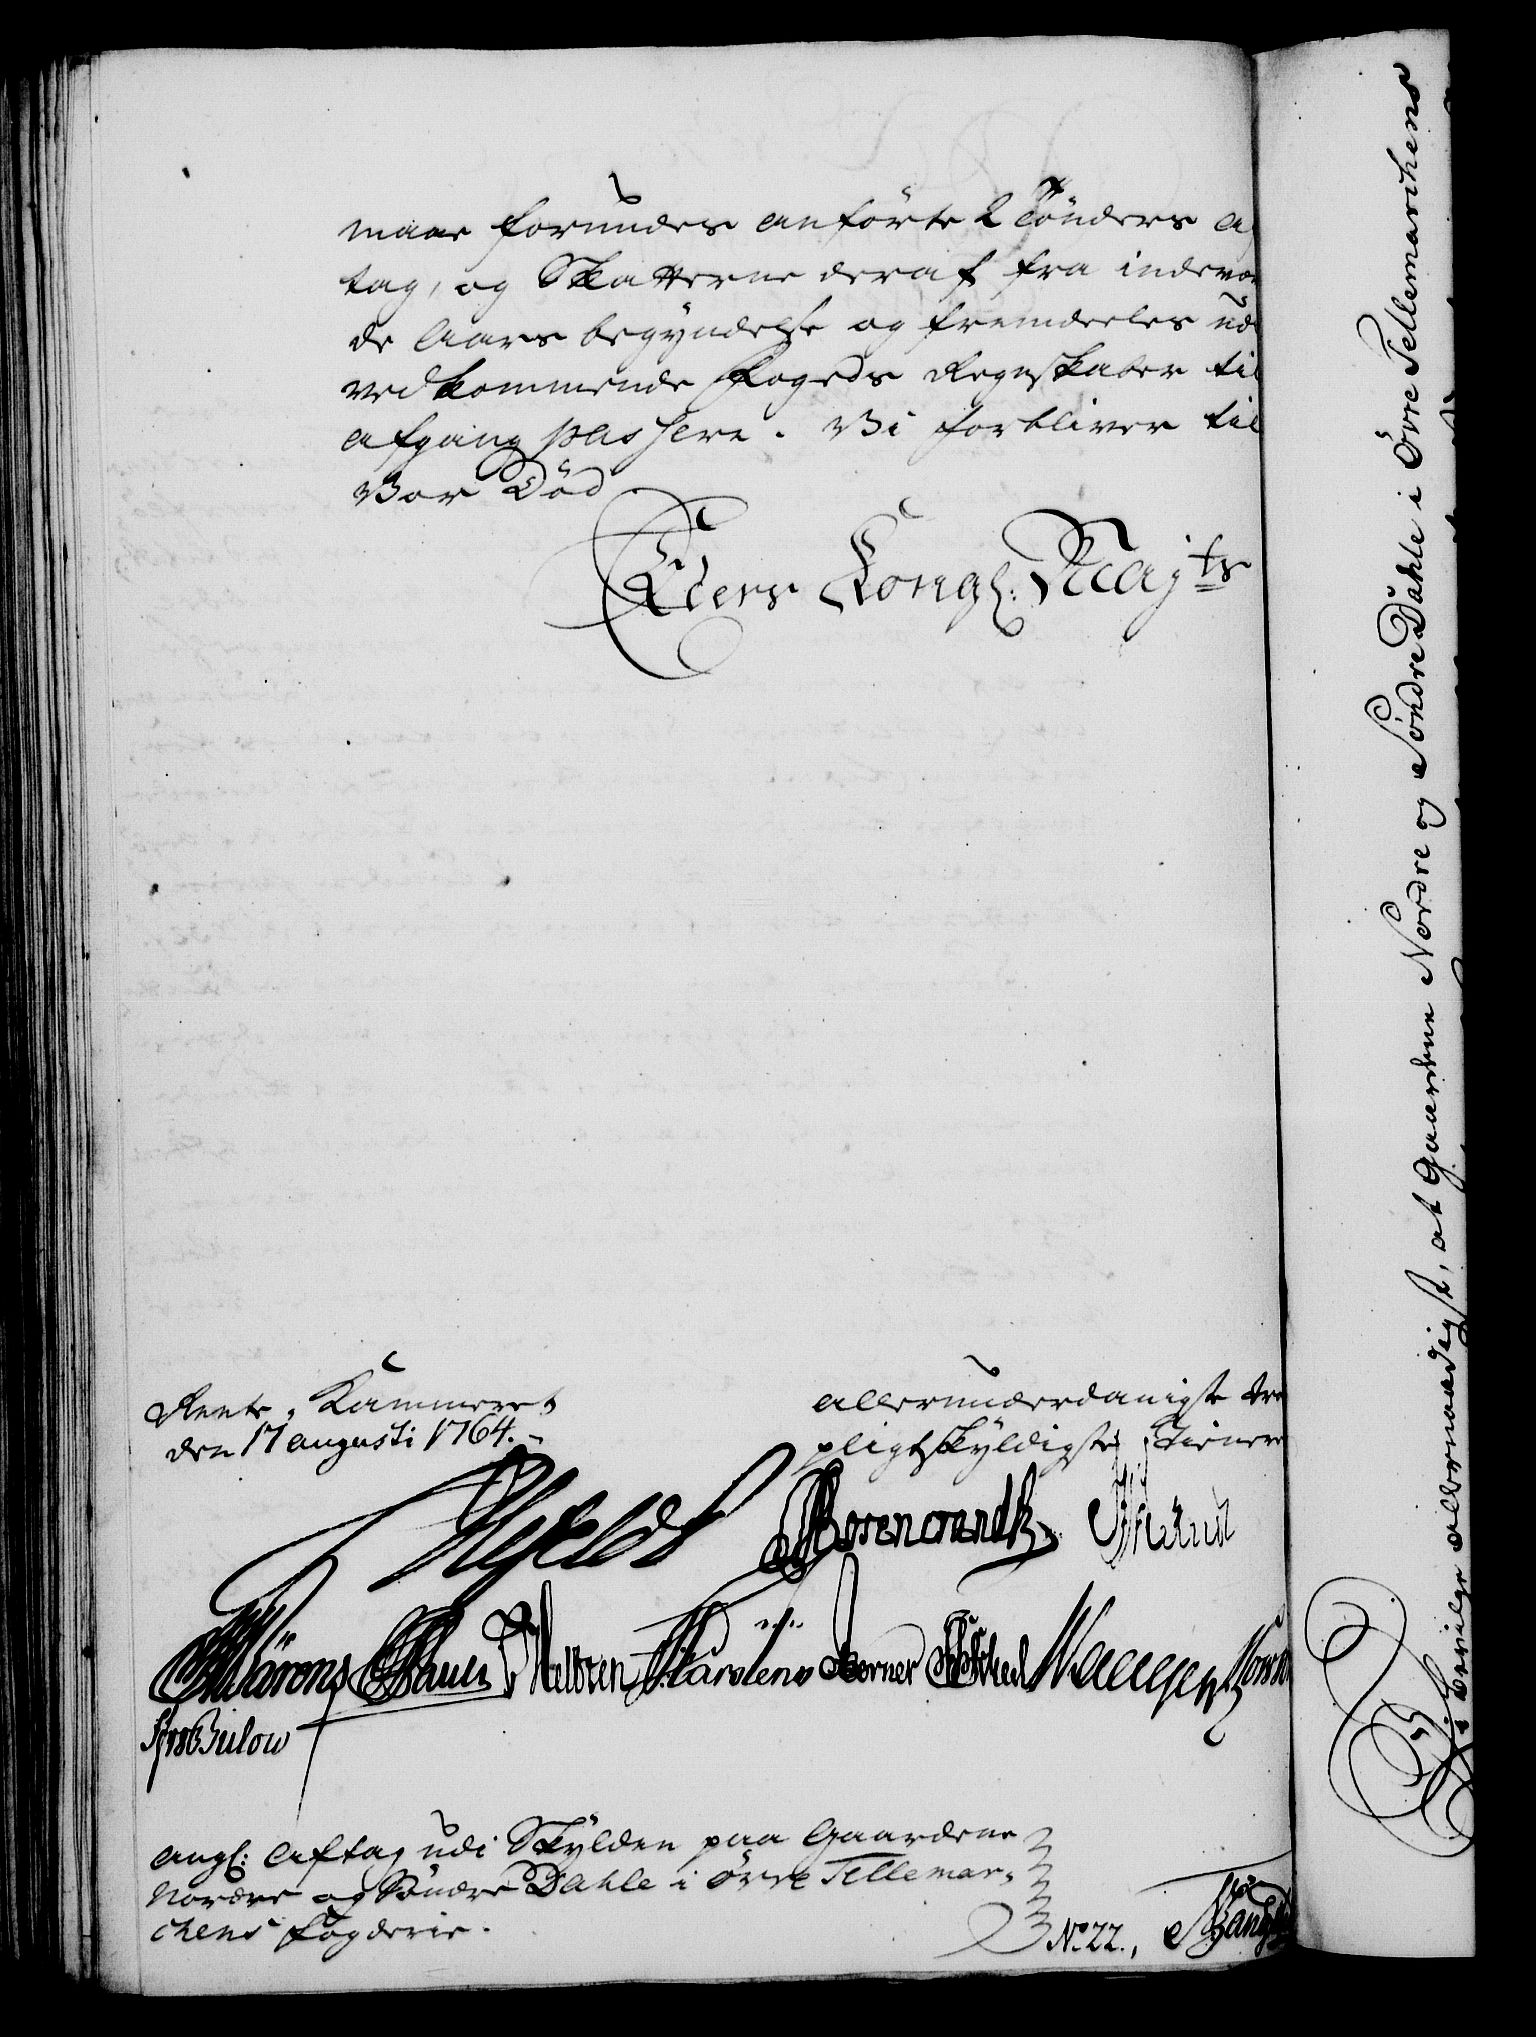 maae forundes anförte 2 Tönders a
tag, og Skatterne deraf fra indevæ
de Aars begÿndelse og fremdeeles ud
vedkommende Fogeds Regnskaber til
afgang passere. Vi forbliver til
Vor Død
Eders Kongl: Majts
Rente-Kammeret
den 17 augusti 1764.
allerunderdanigste tro
pligtskÿldigste Tienere
Ahlefeldt
Rosencrandtz
Bülow
angl: Aftag udi Skÿlden paa Gaardene
Nordre og Söndre Dahle i Övre Tellemar-
chens Fogderie.
No. 22.,
Vi Bevilge allernaadigst, at Gaardene Nordre og Söndre Dahle i Övre Tellemarchens